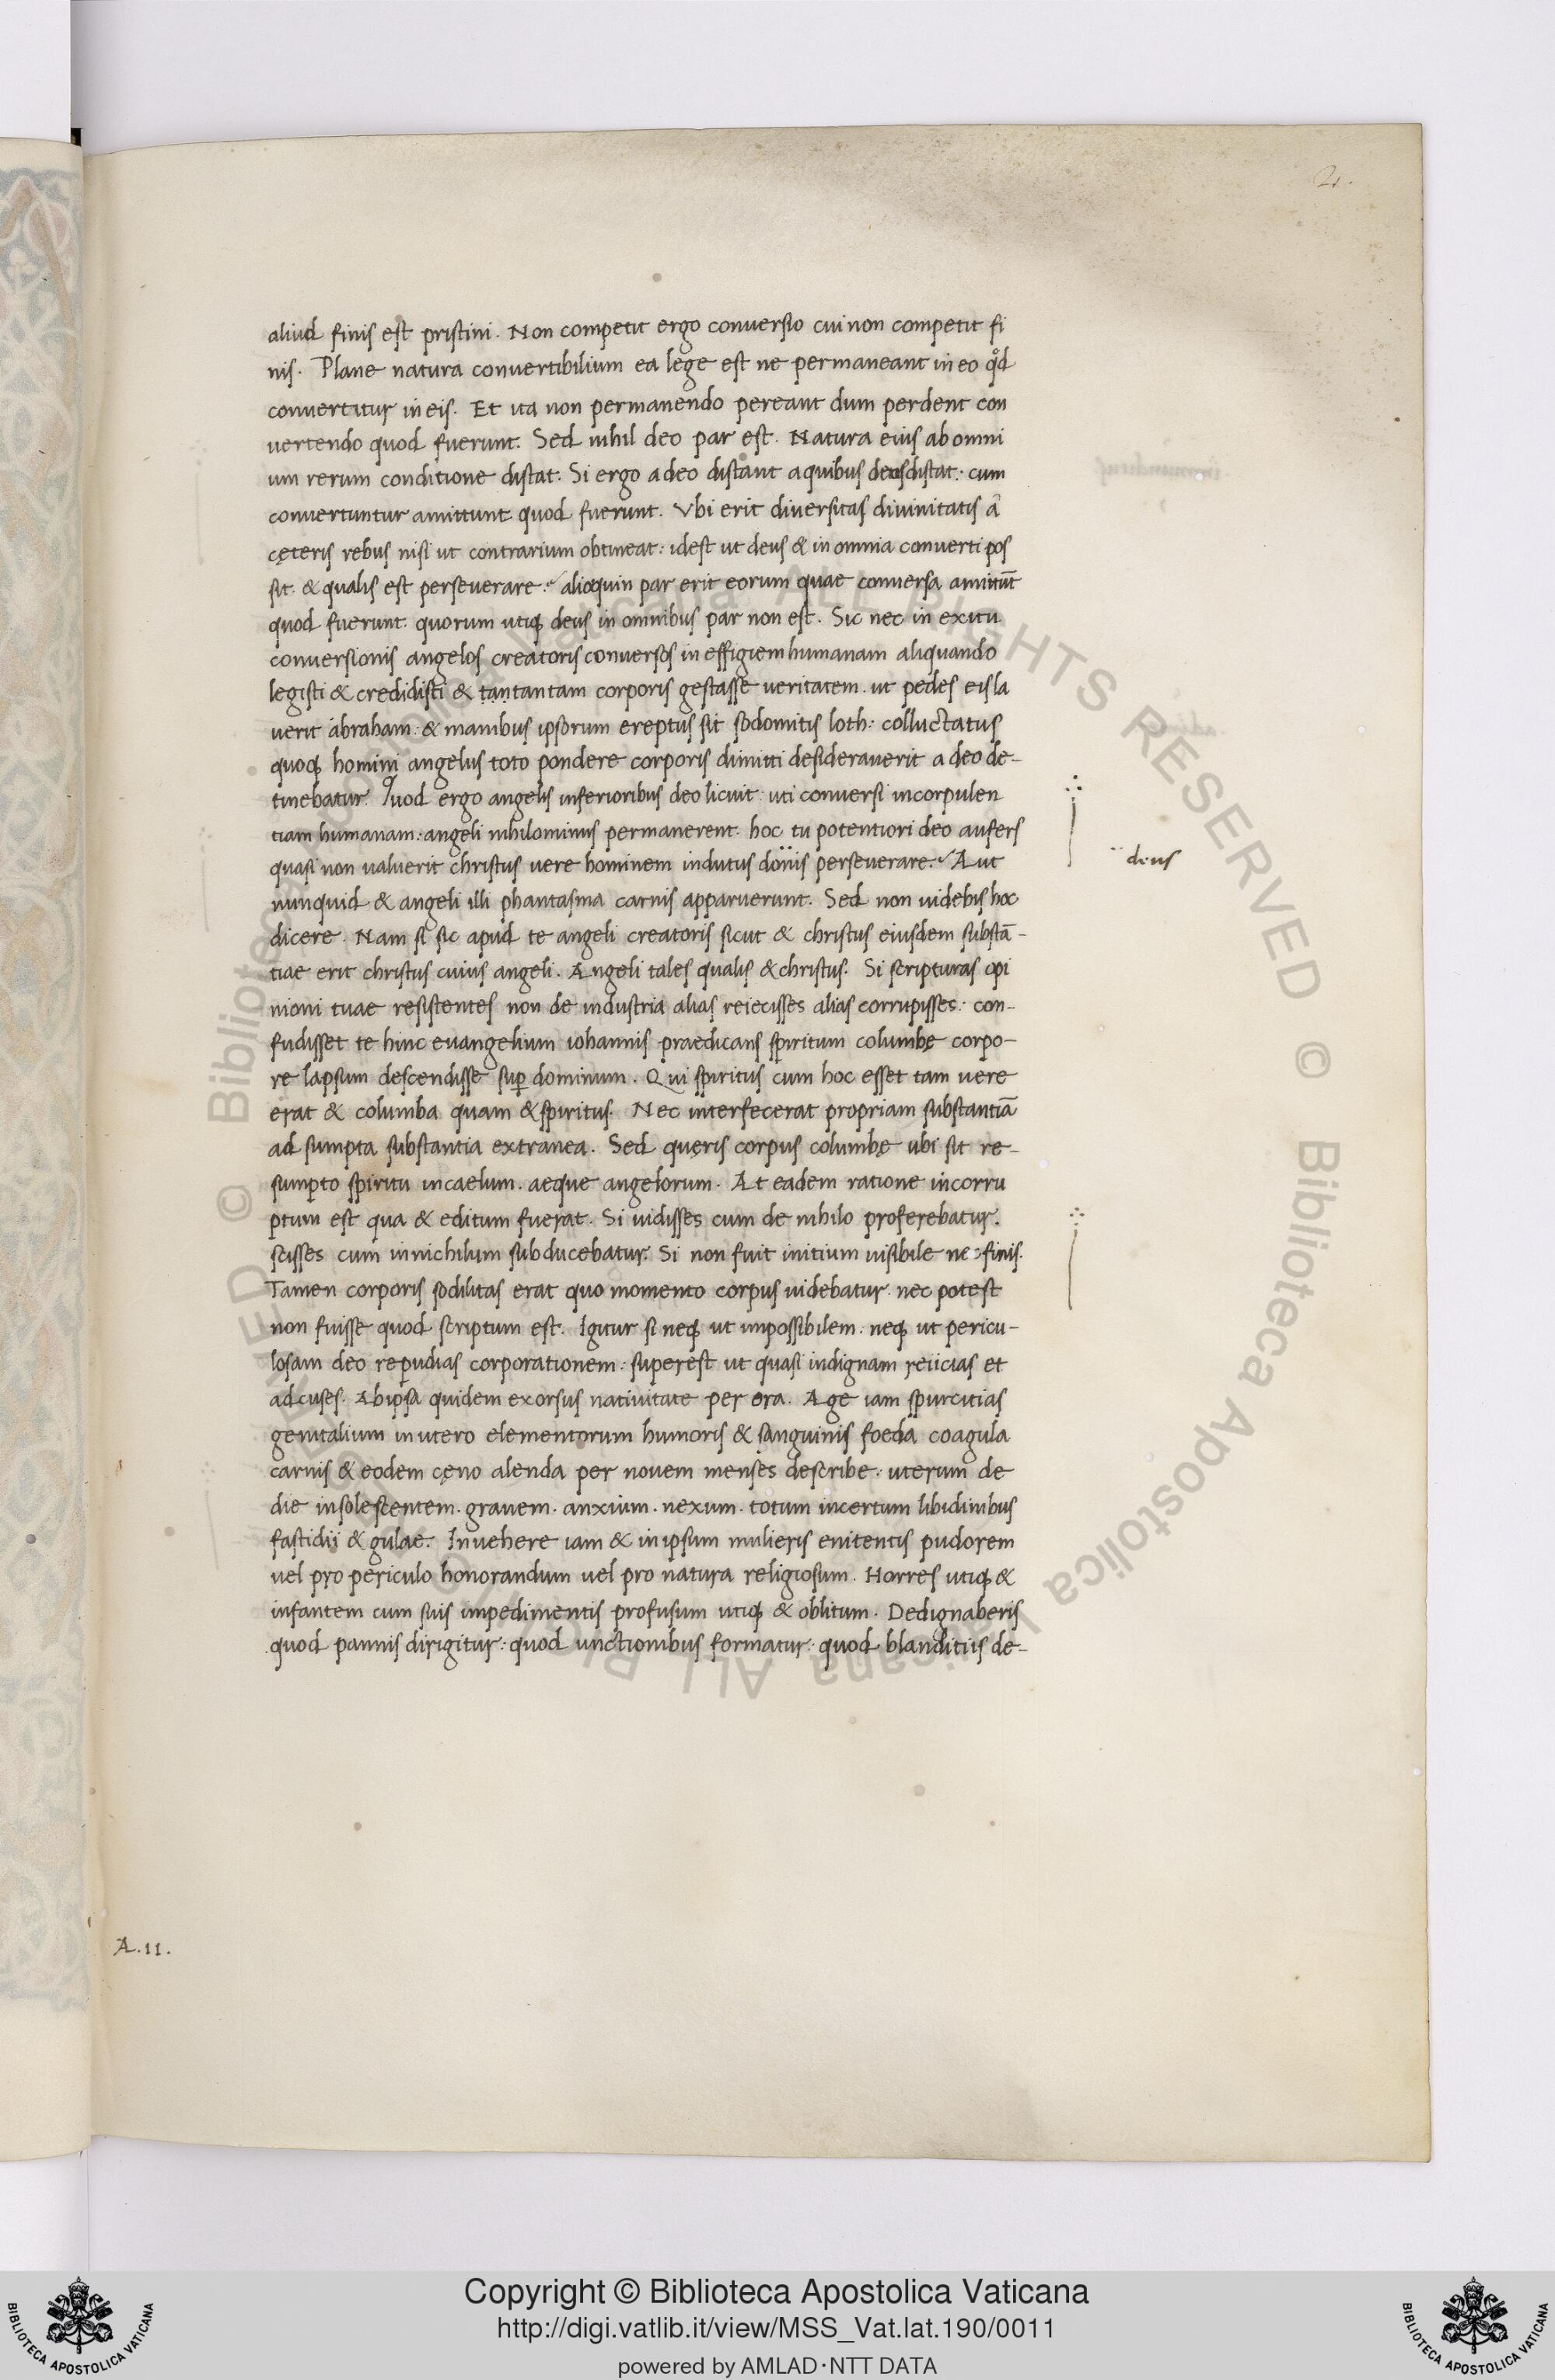 2.
aliud finis est pristini. Non competit ergo conversio cui non competit fi
nis. Plane natura convertibilium ea lege est ne permaneant in eo qd
convertitur in eis. Et ita non permanendo pereant dum perdent con
vertendo quod fuerunt. Sed nihil deo par est. Natura eius ab omni
um rerum conditione distat. Si ergo a deo distant a quibus deus distat: cum
convertuntur amittunt quod fuerunt. Vbi erit diversitas divinitatis a
cęteris rebus nisi ut contrarium obtineat: idest ut deus & in omnia converti pos
sit. & qualis est perseverare. alioquin par erit eorum quae conversa amittūt
quod fuerunt. quorum utiqꝫ deus in omnibus par non est. Sic nec in exitu
conversionis angelos creatoris conversos in effigiem humanam aliquando
legisti & credidisti & tantantam corporis gestasse veritatem. ut pedes eis la
verit abraham: & manibus ipsorum ereptus sit sodomitis loth: colluctatus
quoqꝫ homini angelus toto pondere corporis dimitti desideraverit a deo de-
tinebatur. Quod ergo angelis inferioribus deo licuit: uti conversi incorpulen
tiam humanam: angeli nihilominus permanerent: hoc tu potentiori deo aufers
quasi non valuerit christus vere hominem indutus domis perseverare. Aut
nunquid & angeli illi phantasma carnis apparuerunt. Sed non videbis hoc
dicere. Nam si sic apud te angeli creatoris sicut & christus eiusdem substā-
tiae erit christus cuius angeli. Angeli tales qualis & christus. Si scripturas opi
nioni tuae resistentes non de industria alias reiecisses alias corrupisses: con-
fudisset te hinc evangelium iohannis praedicans spiritum columbę corpo-
re lapsum descendisse sup̱ dominum. Qui spiritus cum hoc esset tam vere
erat & columba quam & spiritus. Nec interfecerat propriam substantiā
ad sumpta substantia extranea. Sed quęris corpus columbę ubi sit re-
sumpto spiritu in caelum. aeque angelorum. At eadem ratione incorru
ptum est qua & editum fuerat. Si vidisses cum de nihilo proferebatur.
scisses cum in nichilum subducebatur. Si non fuit initium visibile nec finis.
Tamen corporis sodilitas erat quo momento corpus videbatur. nec potest
non fuisse quod scriptum est. Igitur si neqꝫ ut impossibilem. neqꝫ ut pericu-
losam deo repudias corporationem: superest ut quasi indignam reiicias et
adcuses. Ab ipsa quidem exorsus nativitate per ora. Age iam spurcitias
genitalium in utero elementorum humoris & sanguinis foeda coagula
carnis & eodem cęno alenda per novem menses describe: uterum de
die insolescentem. gravem. anxium. nexum. totum incertum libidinibus
fastidii & gulae. Invehere iam & in ipsum mulieris enitentis pudorem
vel pro periculo honorandum vel pro natura religiosum. Horres utiqꝫ &
infantem cum suis impedimentis profusum utiqꝫ & oblitum. Dedignaberis
quod pannis dirigitur: quod unctionibus formatur: quod blanditiis de-
deus
A.11.
© Biblioteca Apostolica Vaticana ALL RIGHTS RESERVED
Copyright © Biblioteca Apostolica Vaticana
http://digi.vatlib.it/view/MSS_Vat.lat.190/0011
powered by AMLAD·NTT DATA
BIBLIOTECA APOSTOLICA VATICANA
BIBLIOTECA APOSTOLICA VATICANA